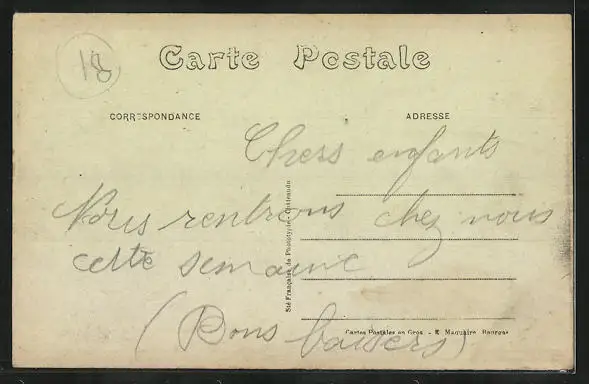 18
Carte Postale
CORRESPONDANCE
ADRESSE
Chers enfants
Nous rentrons chez nous
cette semaine
(Bons baisers)
Sté Française de Phototypie, Châteaudun
Cartes Postales en Gros - Maquaire Bourges